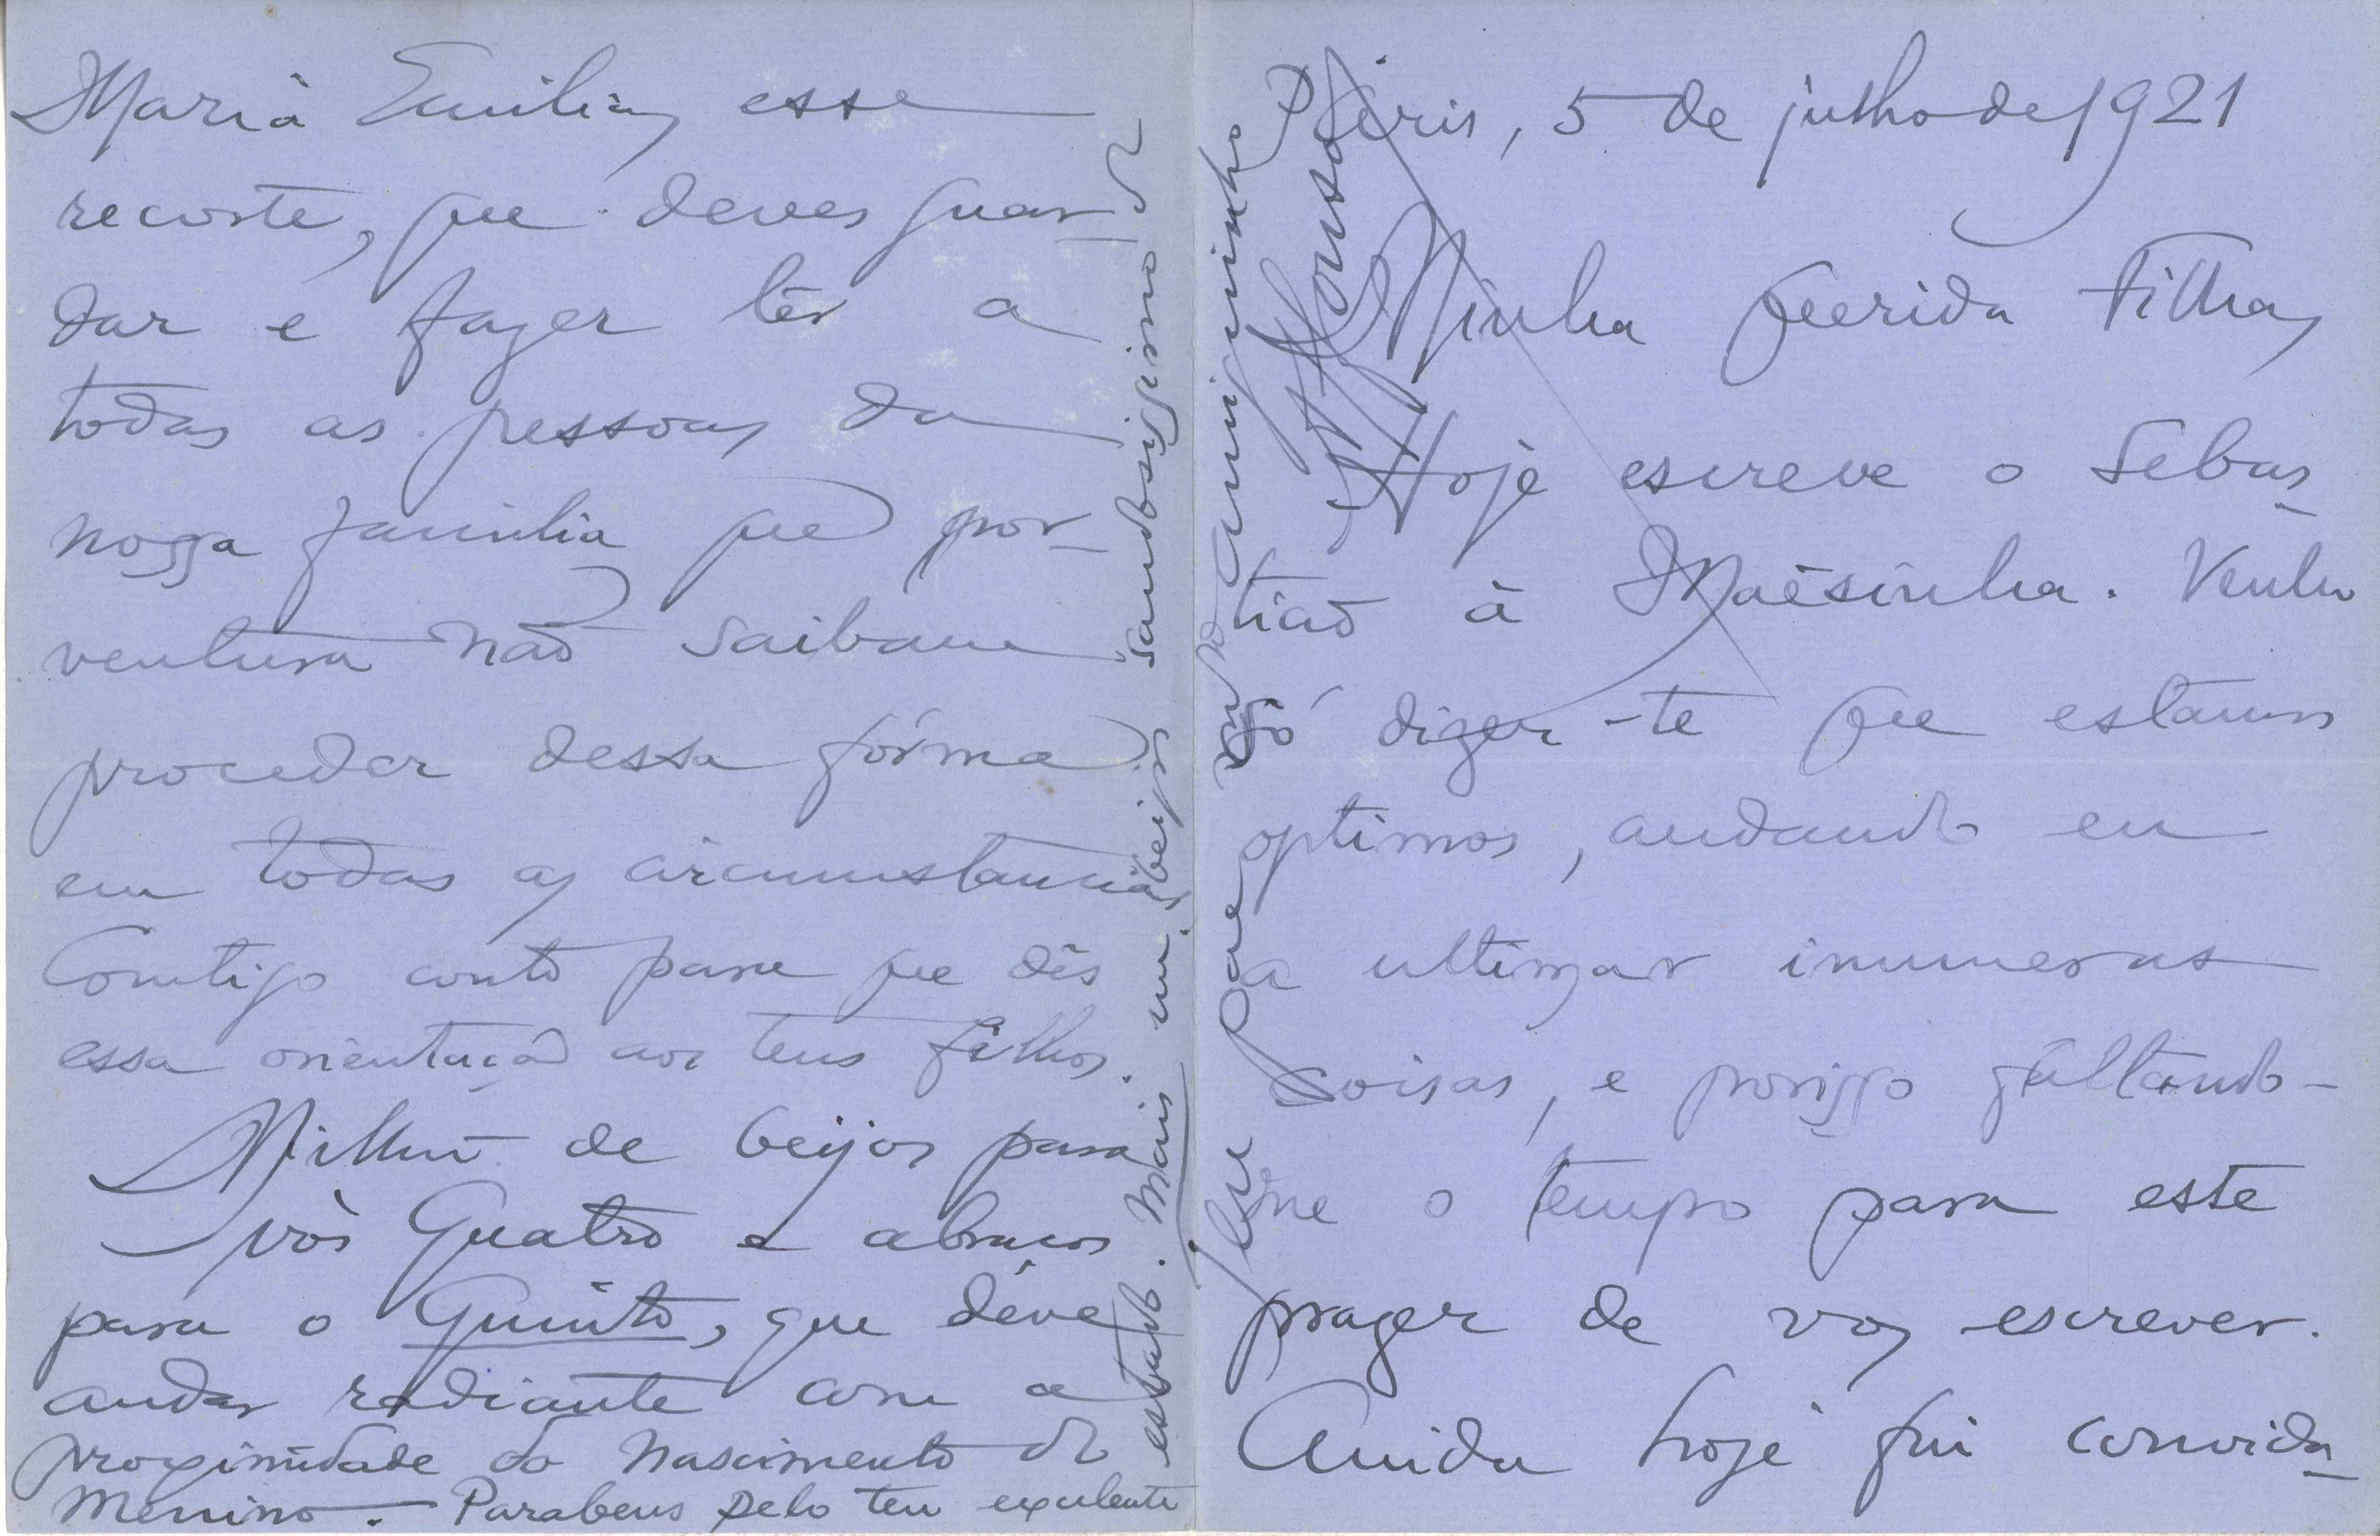 Páris, 5 de julho de 1921
Minha querida Filha,
Hoje escreve o Sebas-
tião à Mãesinha. Venho
só dizer-te que estamos
optimos, andando eu
a ultimar inumeras
coisas, e porisso faltando-
me o tempo para este
prazer de vos escrever.
Ainda hoje fui convida-
Maria Emilia, esse
recorte, que deves guar-
dar e fazer lêr a
todas as pessoas da
nossa familia que por-
ventura não saibam
proceder dessa fórma
em todas as circumstancias
Comtigo conto para que dês
essa orientação aos teus filhos.
Milhões de beijos para
vós Quatro e abraços
para o Quinto, que déve
andar radiante com a
proximidade do nascimento do
Menino. - Parabens pelo teu excelente
estado. Mais um, beijos saudosissimo do
teu Pae muito amiguinho
Affonso